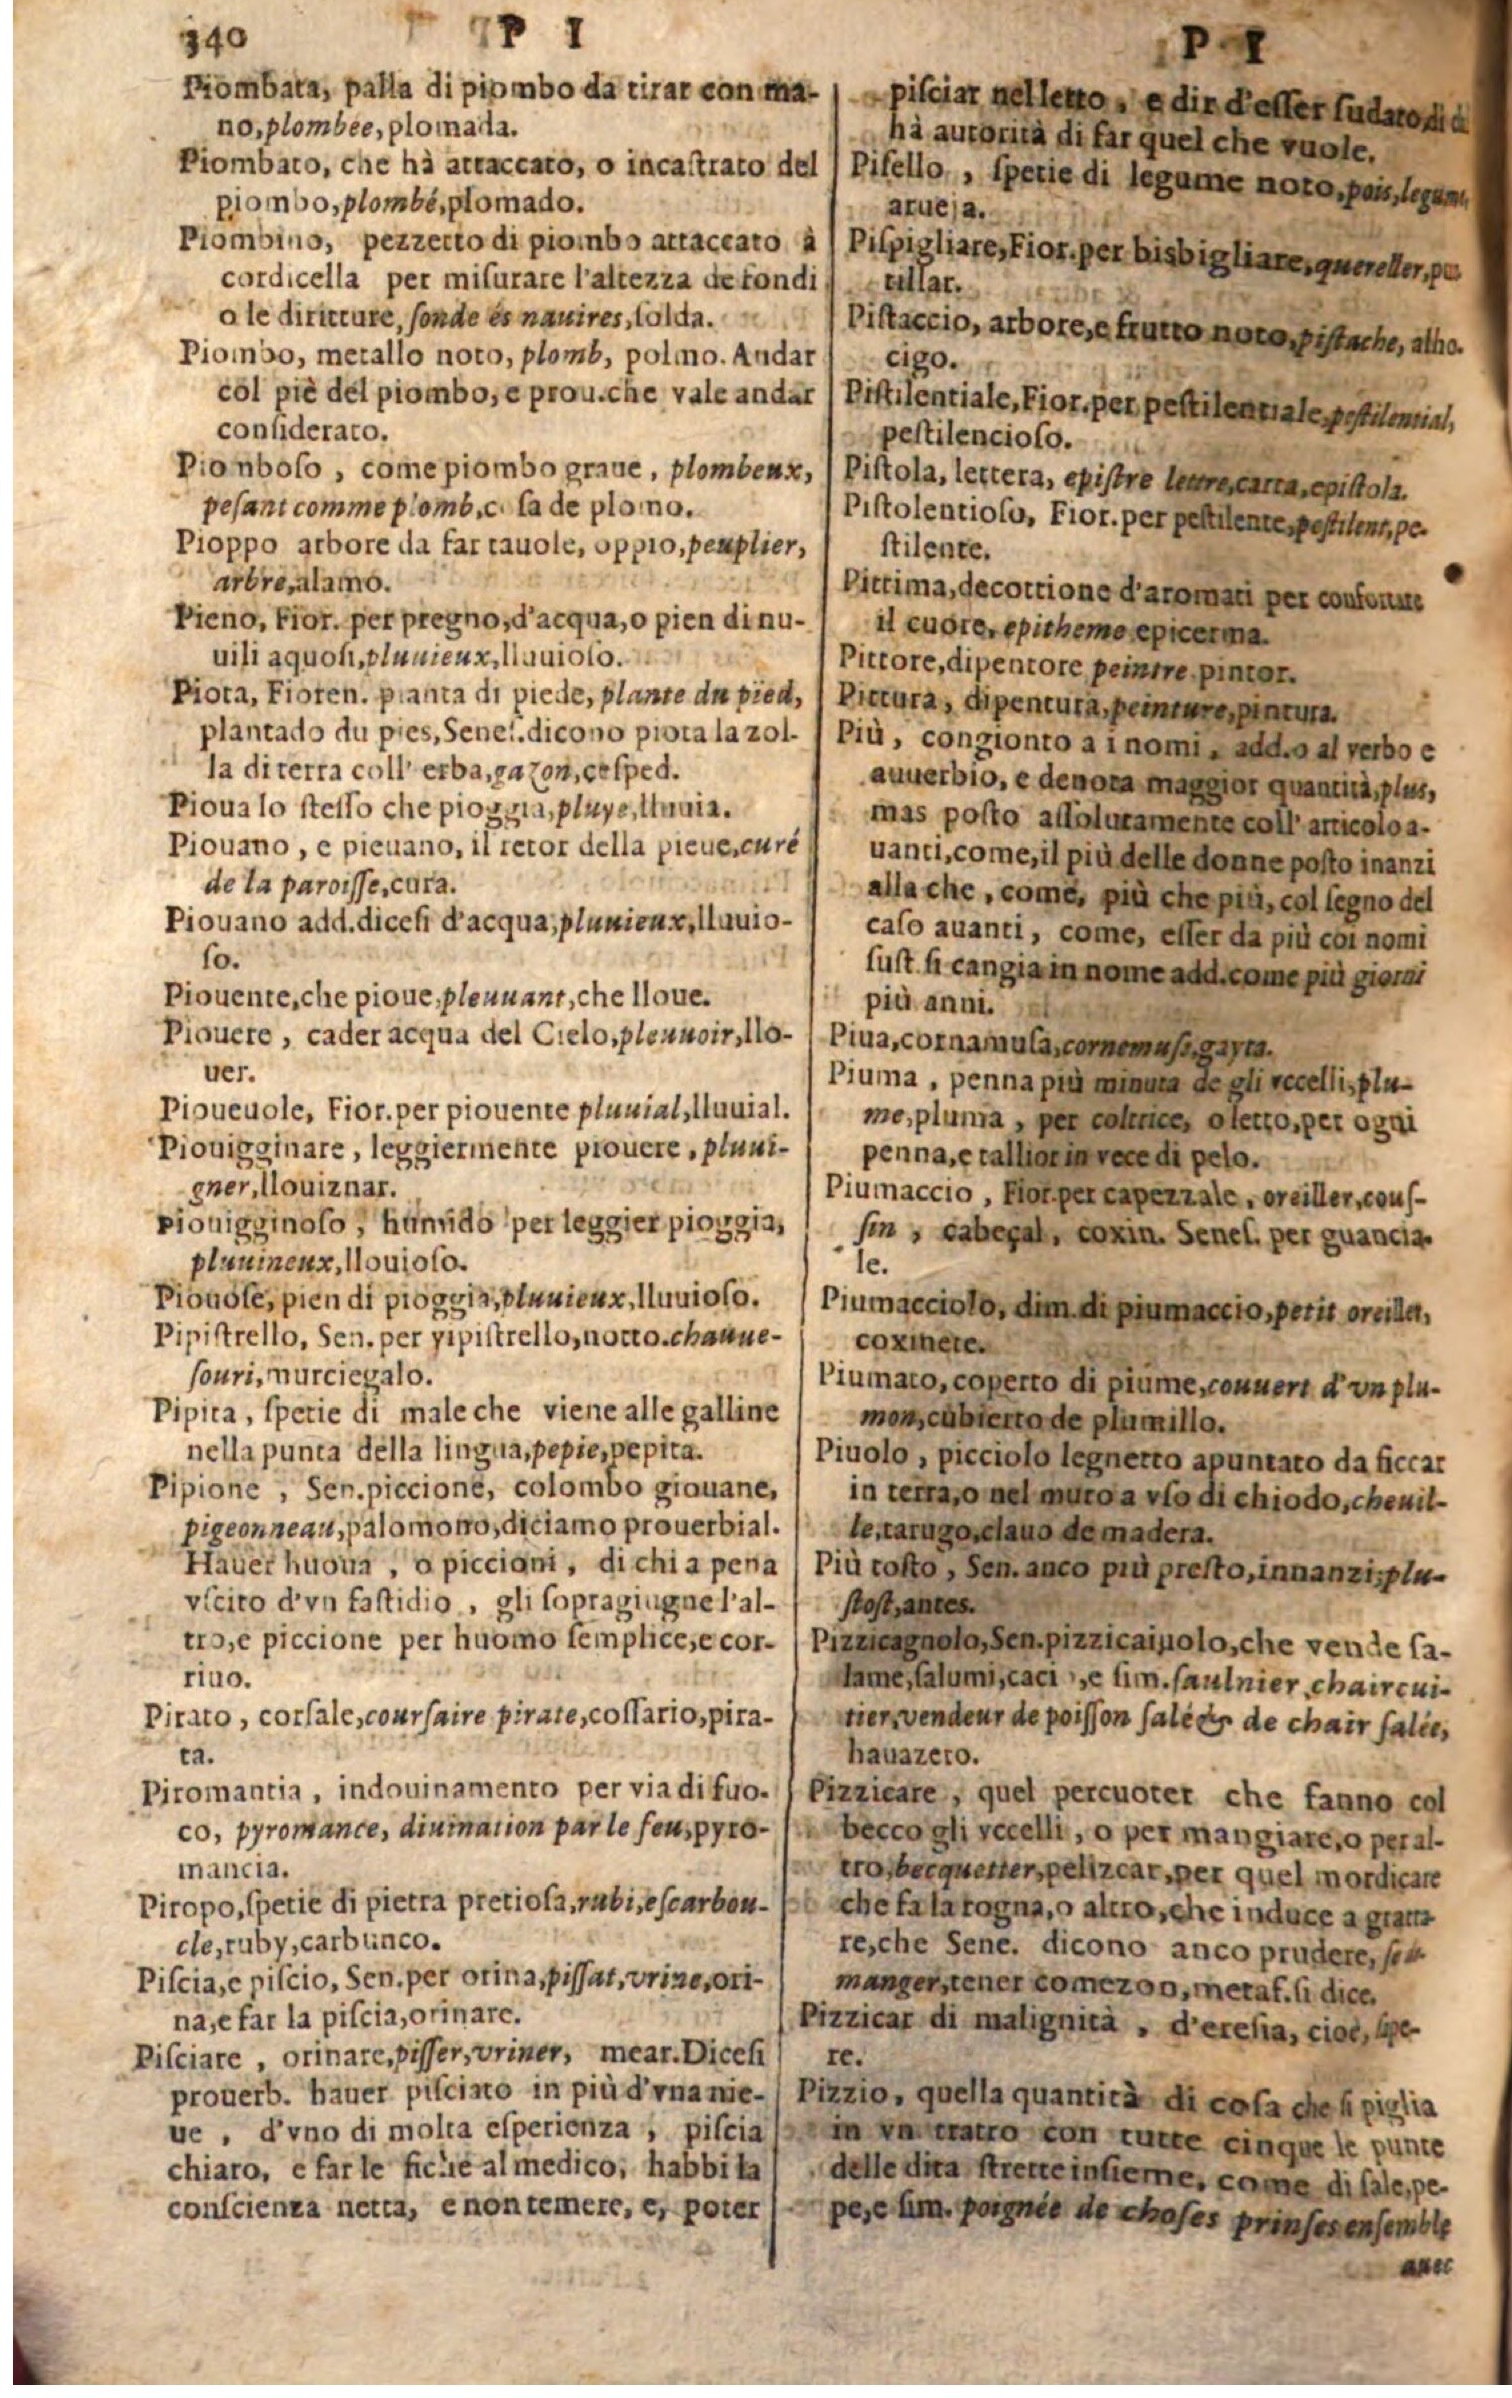 340 P I
Piombata, palla di piombo da tirar con ma-
no, plombée, plomada.
Piombato, che hà attaccato, o incaſtrato del
piombo, plombé, plomado.
Piombino, pezzetto di piombo attaccato à
cordicella per miſurare l'altezza de fondi
o le diritture, ſonde és nauires, ſolda.
Piombo, metallo noto, plomb, polmo. Andar
col piè del piombo, e prou. che vale andar
conſiderato.
Piomboſo, come piombo graue, plombeux,
peſant comme plomb, c. ſa de plomo.
Pioppo arbore da far tauole, oppio, peuplier,
arbre, alamo.
Pieno, Fior. per pregno, d'acqua, o pien di nu-
uili aquoſi, pluuieux, lluuioſo.
Piota, Fioren. pianta di piede, plante du pied,
plantado du pies, Seneſ. dicono piota la zol-
la di terra coll' erba, gazon, ceſped.
Pioua lo ſteſſo che pioggia, pluye, lluuia.
Piouano, e pieuano, il retor della pieue, curé
de la paroiſſe, cura.
Piouano add. diceſi d'acqua, pluuieux, lluuio-
ſo.
Piouente, che pioue, pleuuant, che lloue.
Piouere, cader acqua del Cielo, pleuuoir, llo-
uer.
Pioueuole, Fior. per piouente pluuial, lluuial.
Piouigginare, leggiermente piouere, pluui-
gner, llouiznar.
Piouigginoſo, humido per leggier pioggia,
pluuineux, llouioſo.
Piouoſe, pien di pioggia, pluuieux, lluuioſo.
Pipiſtrello, Sen. per vipiſtrello, notto. chauue-
ſouri, murciegalo.
Pipita, ſpetie di male che viene alle galline
nella punta della lingua, pepie, pepita.
Pipione, Sen. piccione, colombo giouane,
pigeonneau, palomono, diciamo prouerbial.
Hauer huoua, o piccioni, di chi a pena
vſcito d'vn faſtidio, gli ſopragiugne l'al-
tro, e piccione per huomo ſemplice, e cor-
riuo.
Pirato, corſale, courſaire pirate, coſſario, pira-
ta.
Piromantia, indouinamento per via di fuo-
co, pyromance, diuination par le feu, pyro-
mancia.
Piropo, ſpetie di pietra pretioſa, rubi, eſcarbou-
cle, ruby, carbunco.
Piſcia, e piſcio, Sen. per orina, piſſat, vrine, ori-
na, e far la piſcia, orinare.
Piſciare, orinare, piſſer, vriner, mear. Diceſi
prouerb. hauer piſciato in più d'vna nie-
ue, d'vno di molta eſperienza, piſcia
chiaro, e far le fiche al medico, habbi la
conſcienza netta, e non temere, e, poter
P I
piſciar nel letto, e dir d'eſſer ſudato, di
hà autorità di far quel che vuole.
Piſello, ſpetie di legume noto, pois, legume,
arueja.
Piſpigliare, Fior. per bisbigliare, quereller,
tillar.
Piſtaccio, arbore, e frutto noto, piſtache, alho.
cigo.
Piſtilentiale, Fior. per peſtilentiale, peſtilential,
peſtilencioſo.
Piſtola, lettera, epiſtre lettre, carta, epiſtola.
Piſtolentioſo, Fior. per peſtilente, peſtilent, pe-
ſtilente.
Pittima, decottione d'aromati per confortare
il cuore, epitheme epicerma.
Pittore, dipentore peintre pintor.
Pittura, dipentura, peinture, pintura.
Più, congionto a i nomi, add. o al verbo e
auuerbio, e denota maggior quantità, plus,
mas poſto aſſolutamente coll' articolo a-
uanti, come, il più delle donne poſto inanzi
alla che, come, più che più, col ſegno del
caſo auanti, come, eſſer da più coi nomi
ſuſt. ſi cangia in nome add. come più giorni
più anni.
Piua, cornamuſa, cornemuſe, gayta.
Piuma, penna più minuta de gli vccelli, plu-
me, pluma, per coltrice, o letto, per ogni
penna, e tallior in vece di pelo.
Piumaccio, Fior. per capezzale, oreiller, couſ-
ſin, cabeçal, coxin. Seneſ. per guancia-
le.
Piumacciolo, dim. di piumaccio, petit oreiller,
coxinete.
Piumato, coperto di piume, couuert d'vn plu-
mon, cubierto de plumillo.
Piuolo, picciolo legnetto apuntato da ficcar
in terra, o nel muro a vſo di chiodo, cheuil-
le, tarugo, clauo de madera.
Più toſto, Sen. anco più preſto, innanzi, plu-
ſtoſt, antes.
Pizzicagnolo, Sen. pizzicaiuolo, che vende ſa-
lame, ſalumi, caci, e ſim. ſaulnier, chaircui-
tier, vendeur de poiſſon salé & de chair ſalée,
hauazero.
Pizzicare, quel percuoter che fanno col
becco gli vccelli, o per mangiare, o per al-
tro, becquetter, pelizcar, per quel mordicare
che fa la rogna, o altro, che induce a gratta-
re, che Sene. dicono anco prudere, ſe
manger, tener comezon, metaf. ſi dice.
Pizzicar di malignità, d'ereſia, cioè, ſape-
re.
Pizzio, quella quantità di coſa che ſi piglia
in vn tratto con tutte cinque le punte
delle dita ſtrette inſieme, come di ſale, pe-
pe, e ſim. poignée de choſes prinſes enſemble
auec